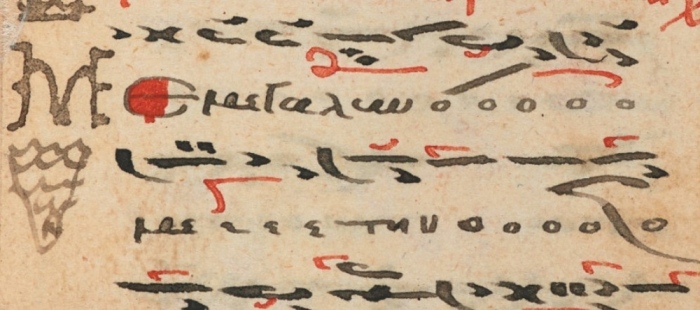 Μ Ε μεγαλων ο ο ο ο ο
με ε ε την ο ο ο ο ο